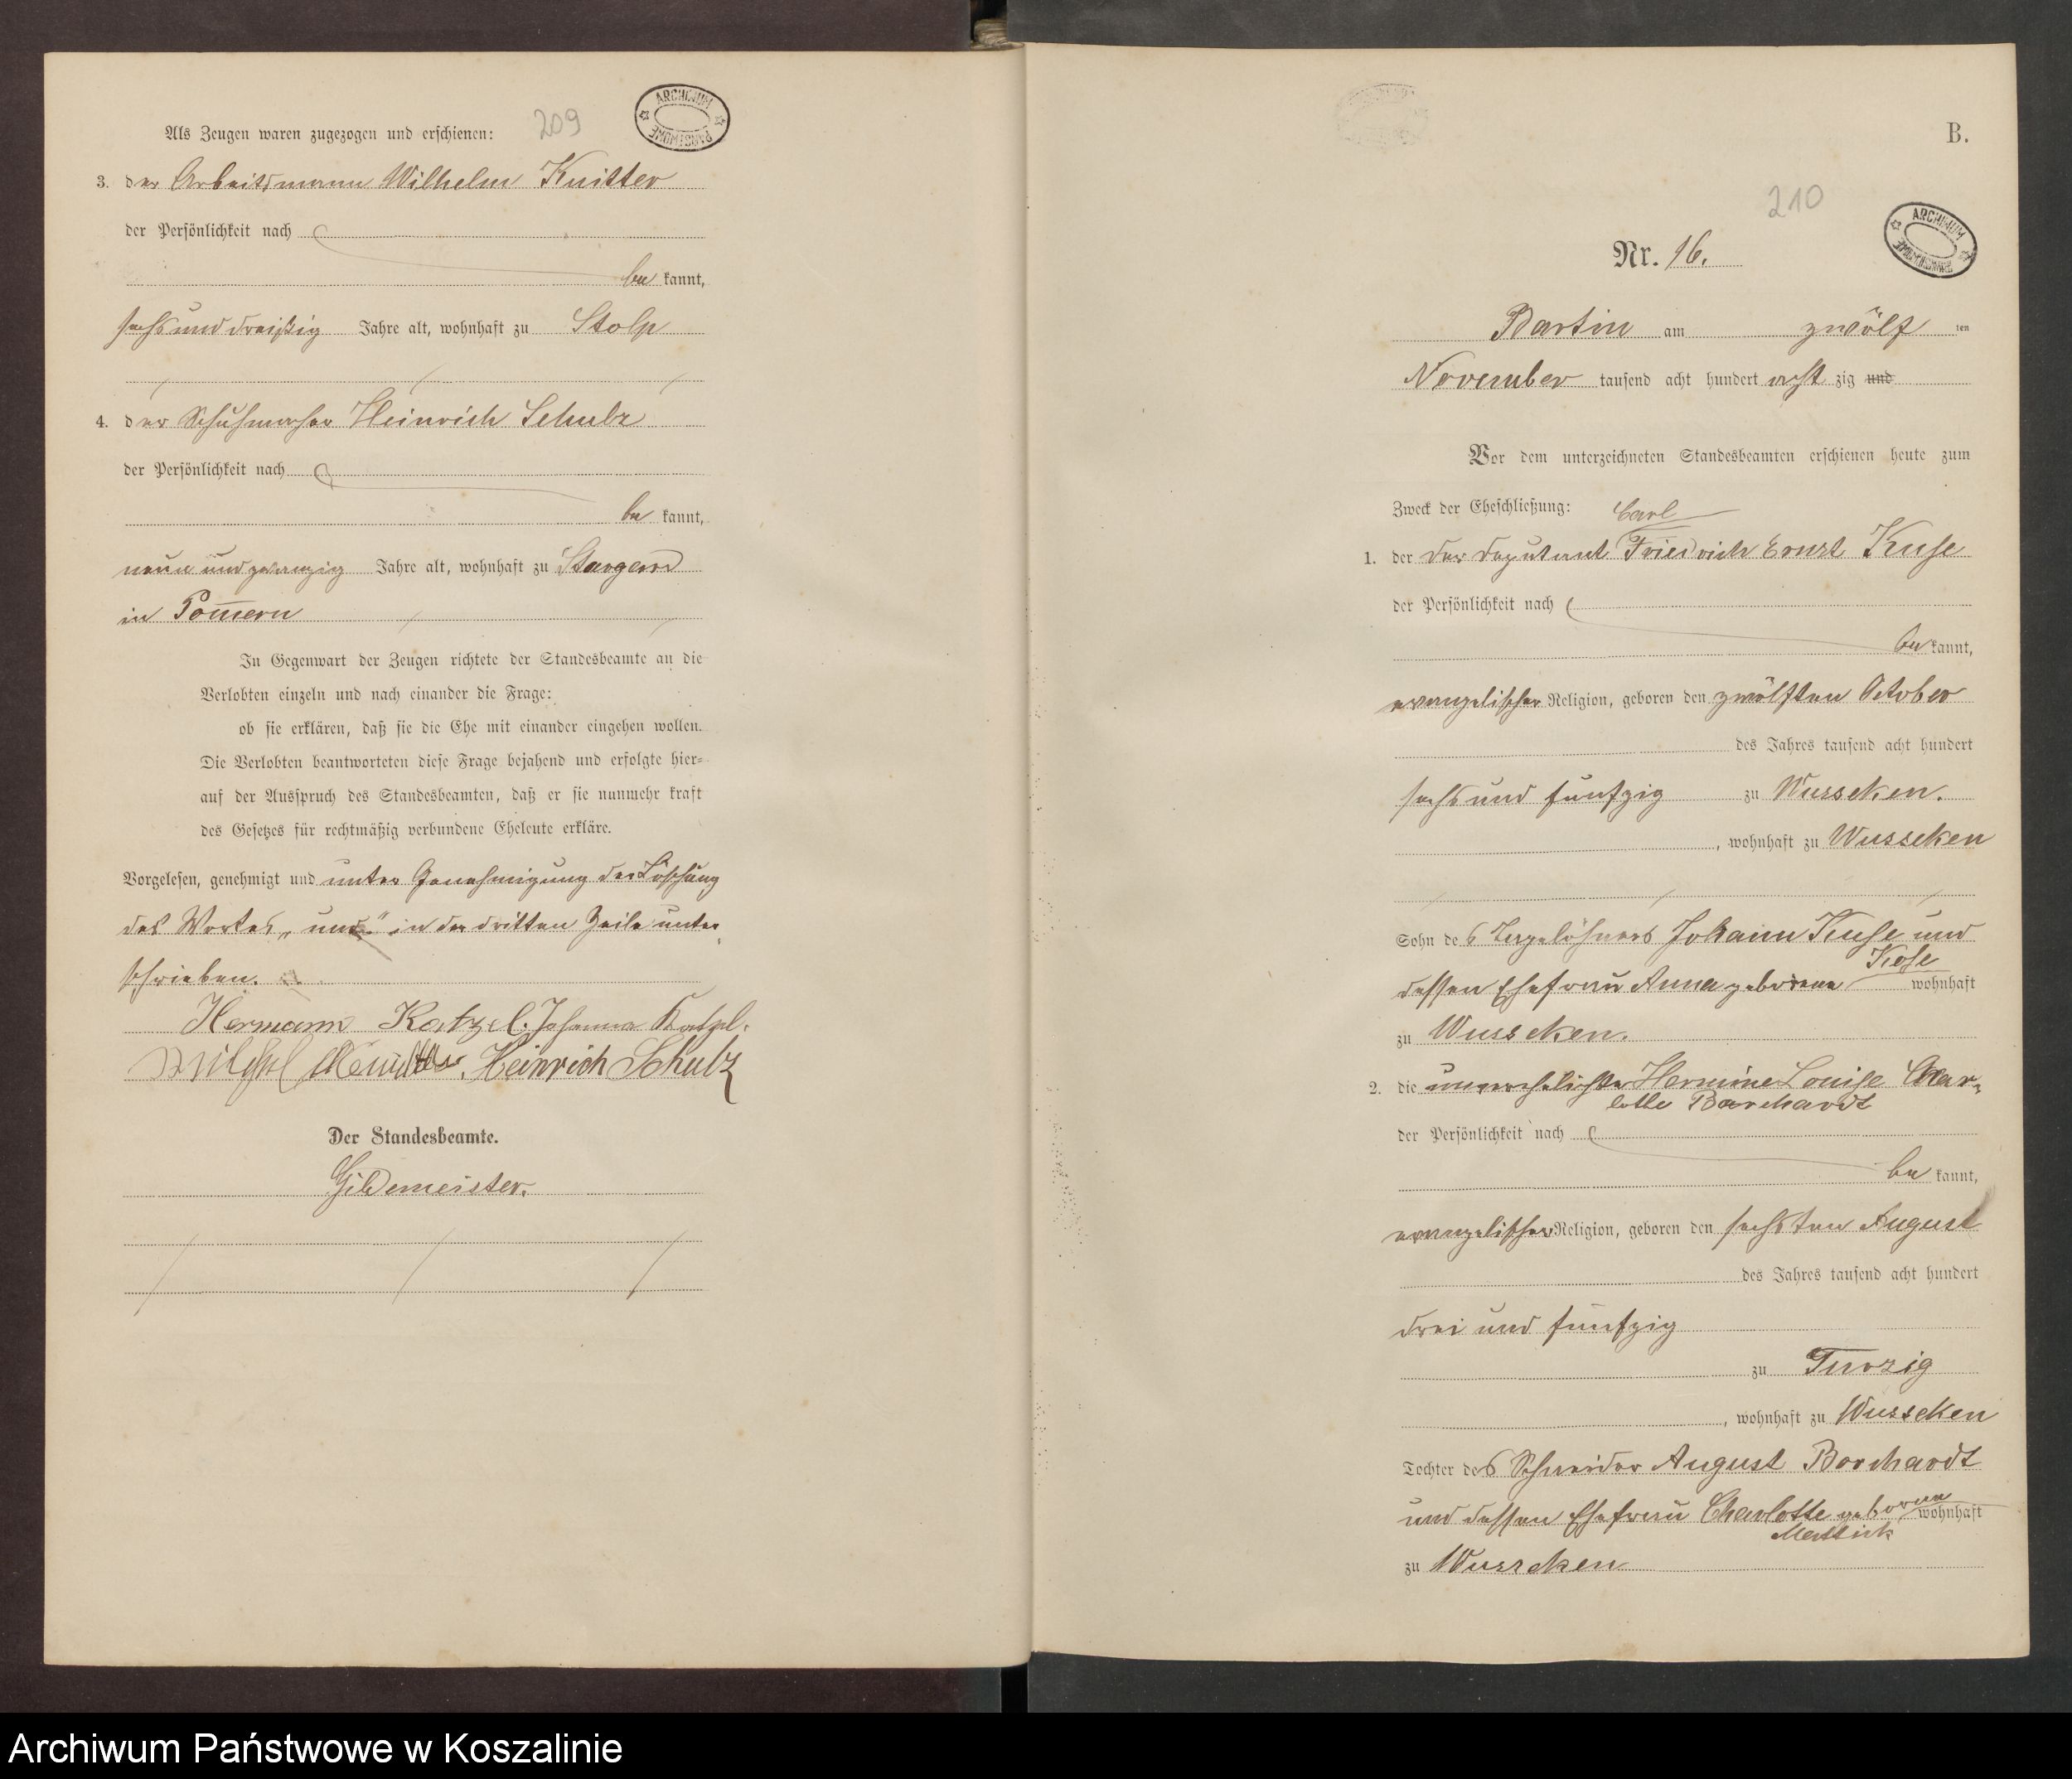 209
ARCHIWUM PAŃSTWOWE
Als Zeugen waren zugezogen und erschienen:
3. der Arbeitsmann Wilhelm Knitter
der Persönlichkeit nach
be kannt,
sechs und dreißig Jahre alt, wohnhaft zu Stolp
4. der Schuhmacher Heinrich Schulz
der Persönlichkeit nach
be kannt,
neun und zwanzig Jahre alt, wohnhaft zu Stargard
in Pom̄ern
In Gegenwart der Zeugen richtete der Standesbeamte an die
Verlobten einzeln und nach einander die Frage:
ob sie erklären, daß sie die Ehe mit einander eingehen wollen.
Die Verlobten beantworteten diese Frage bejahend und erfolgte hier=
auf der Ausspruch des Standesbeamten, daß er sie nunmehr kraft
des Gesetzes für rechtmäßig verbundene Eheleute erkläre.
Vorgelesen, genehmigt und unter Genehmigung der Löschung
des Wortes „und" in der dritten Zeile unter
schrieben.
Hermann Katzel. Johanna Katzel.
Wilhelm Knitter. Heinrich Schulz
Der Standesbeamte.
Gildemeister.
B.
210
ARCHIWUM PAŃSTWOWE
Nr. 16.
Bartin am zwölf ten
November tausend acht hundert acht zig und
Vor dem unterzeichneten Standesbeamten erschienen heute zum
Zweck der Eheschließung:
Carl
1. der der Deputant Friedrich Ernst Kuse
der Persönlichkeit nach
be kannt,
evangelischer Religion, geboren den zwölften October
des Jahres tausend acht hundert
sechs und fünfzig zu Wusseken.
, wohnhaft zu Wusseken
Sohn des Tagelöhners Johann Kuse und
dessen Ehefrau Anna geborene Kose wohnhaft
zu Wusseken.
2. die unverehelichte Hermine Louise Char=
lotte Borchardt
der Persönlichkeit nach
be kannt,
evangelischer Religion, geboren den sechsten August
des Jahres tausend acht hundert
drei und fünfzig
zu Turzig
, wohnhaft zu Wusseken
Tochter des Schneider August Borchardt
und dessen Ehefrau Charlotte geborene wohnhaft
zu Wusseken
Archiwum Państwowe w Koszalinie